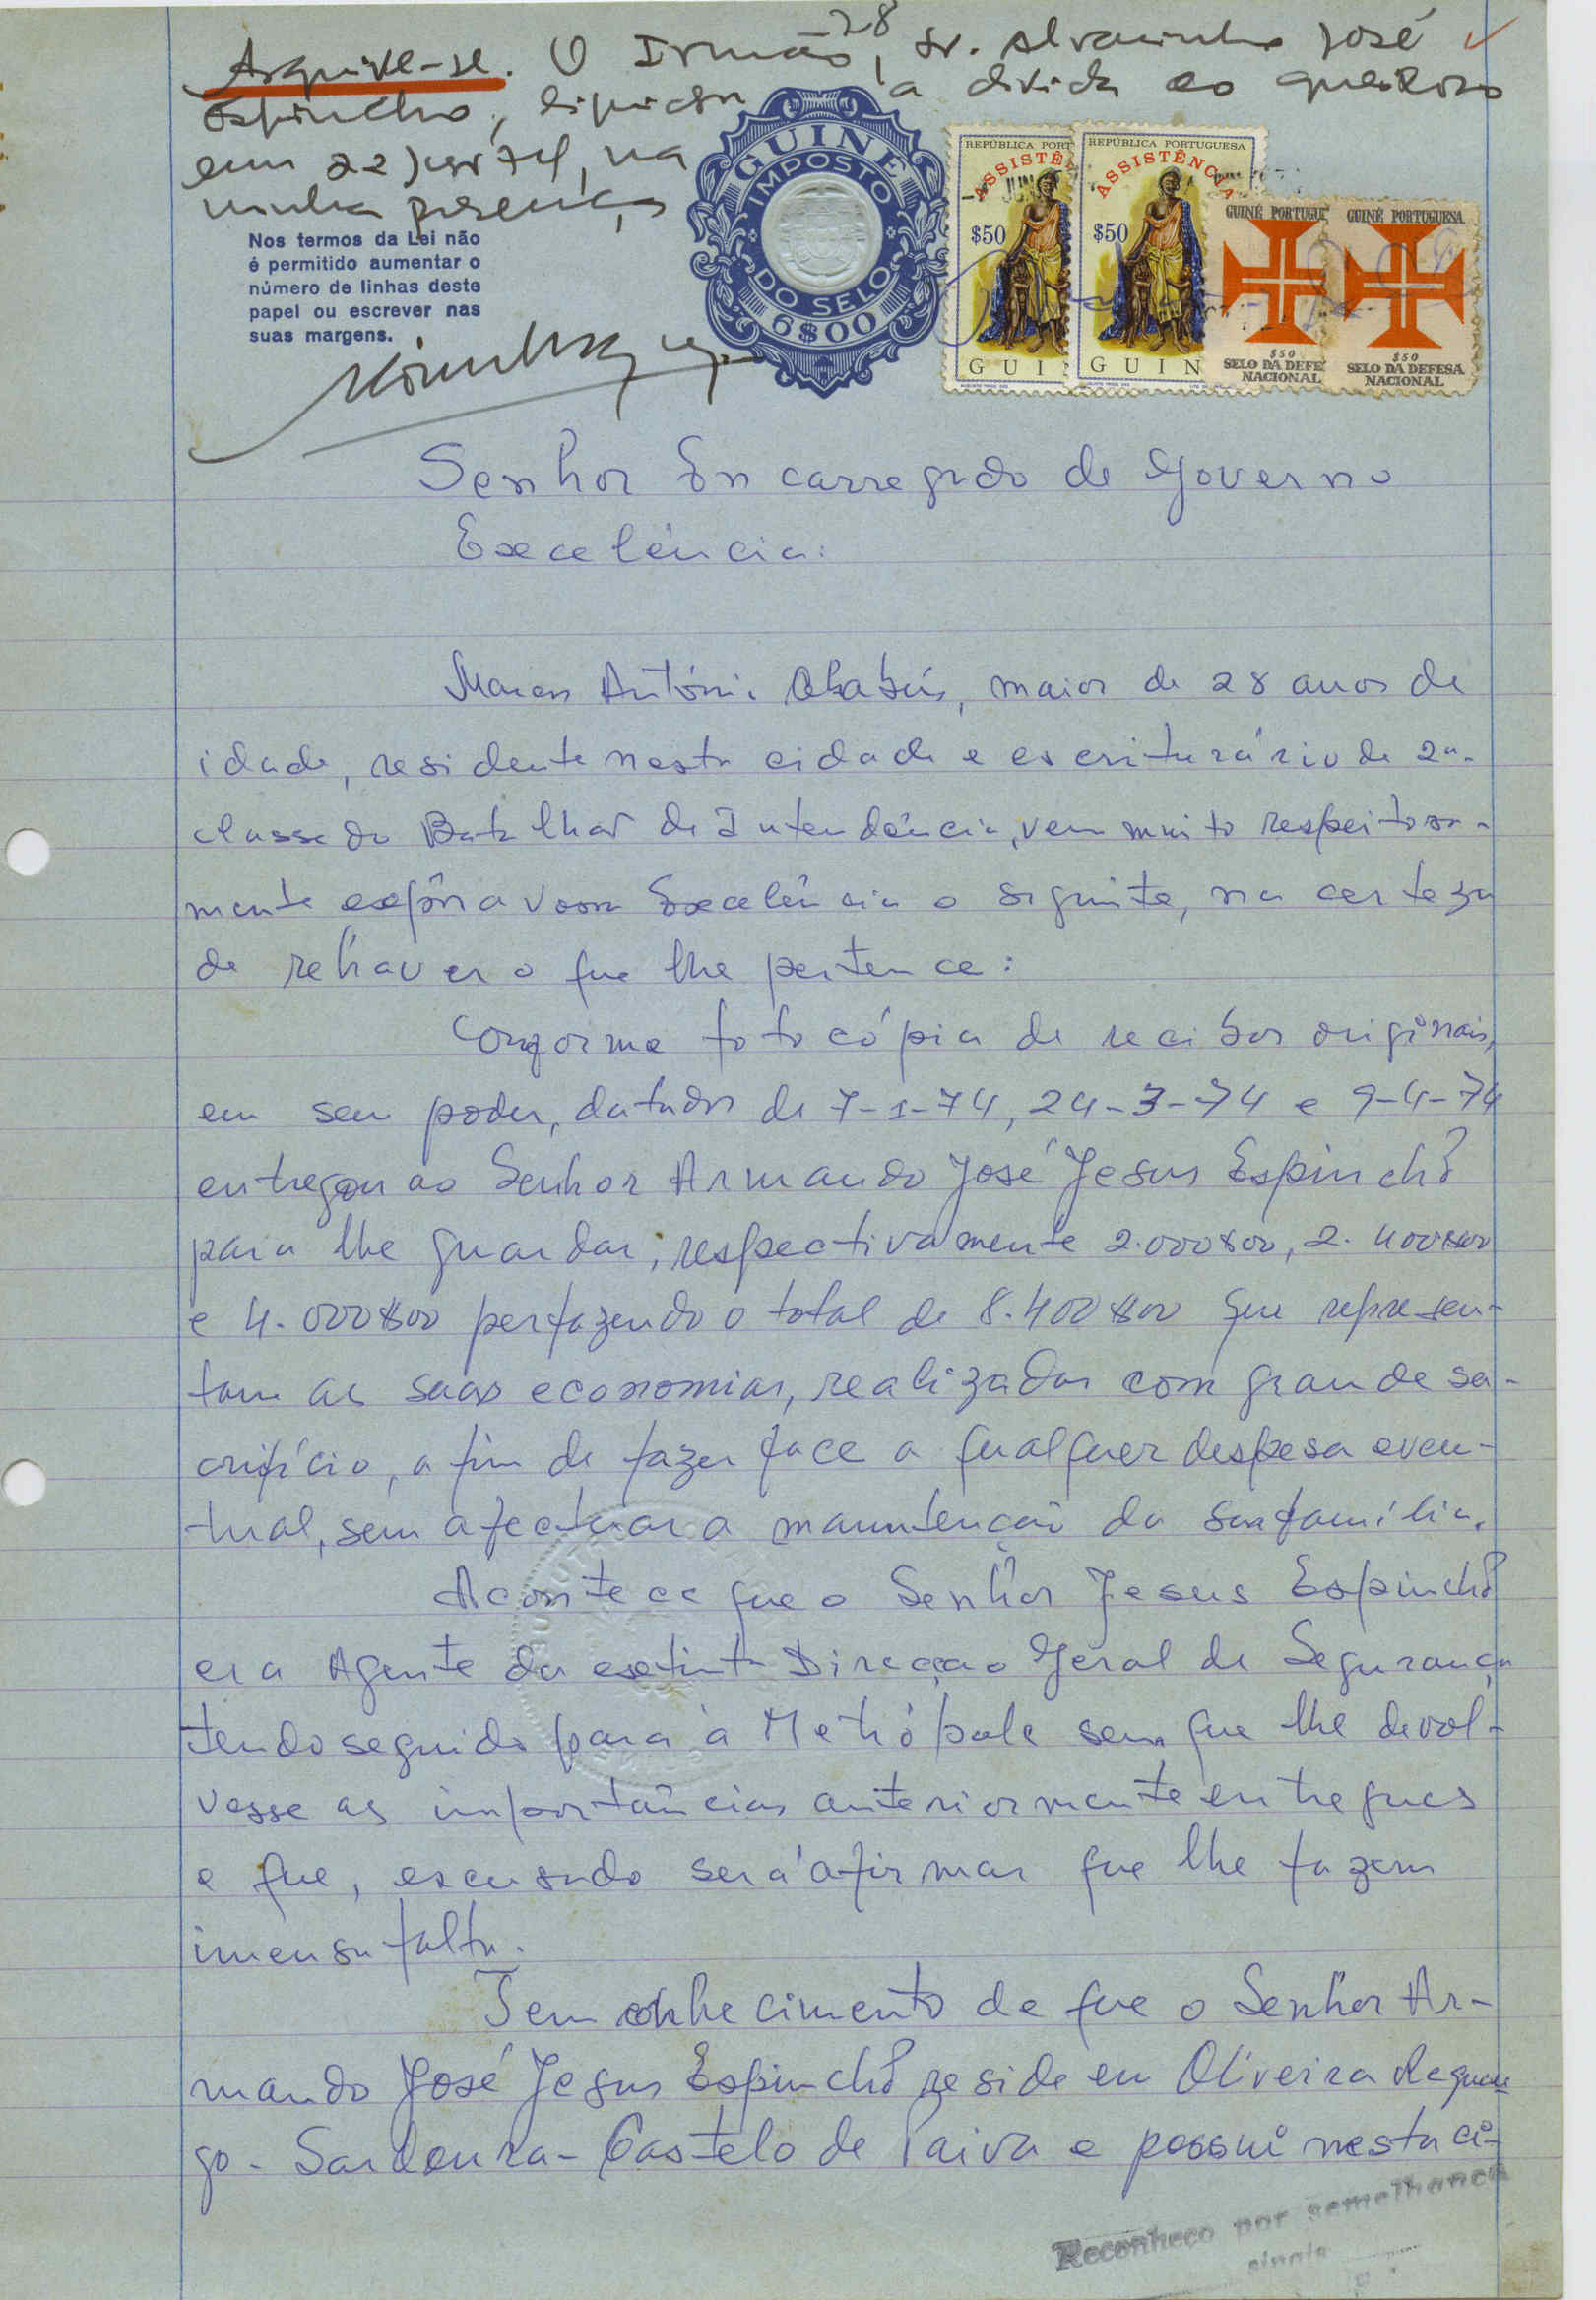 28
Arquive-se. O Irmão, sr. Alvarinho José
Espincho, liquidou a divida ao queixoso
em 22 Jun 74, na
minha presença
GUINÉ
IMPOSTO
DO SELO
6$00
REPÚBLICA PORT
ASSISTÊ
$50
GUI
REPÚBLICA PORTUGUESA
ASSISTÊNCIA
$50
GUIN
GUINÉ PORTUGUE
$50
SELO DA DEFE
NACIONAL
GUINÉ PORTUGUESA
$50
SELO DA DEFESA
NACIONAL
Nos termos da Lei não
é permitido aumentar o
número de linhas deste
papel ou escrever nas
suas margens.
Senhor Encarregado de Governo
Excelência:
António, maior de 28 anos de
idade, residente nesta cidade e escriturário de 2ª.
classe do Batalhão de Intendência, vem muito respeitosa-
mente expôr a Vossa Excelência o seguinte, na certeza
de rehaver o que lhe pertence:
Conforme fotocópia de recibos originais,
em seu poder, datados de 7-1-74, 24-3-74 e 9-4-74
entregou ao Senhor Armando José Jesus Espinchô
para lhe guardar, respectivamente 2.000$00, 2.400$00
e 4.000$00 perfazendo o total de 8.400$00 que represen-
tam as suas economias, realizadas com grande sa-
crifício, a fim de fazer face a qualquer despesa even-
tual, sem afectar a manutenção da sua família.
Acontece que o Senhor Jesus Espinchô
era Agente da extinta Direcção Geral de Segurança
tendo seguido para a Metrópole sem que lhe devol-
vesse as importâncias anteriormente entregues
e que, escusado será afirmar que lhe fazem
imensa falta.
Tem conhecimento de que o Senhor Ar-
mando José Jesus Espinchô reside em Oliveira Reguen-
go - Sardoura - Castelo de Paiva e possui nesta ci-
Reconheço por semelhança
sinais